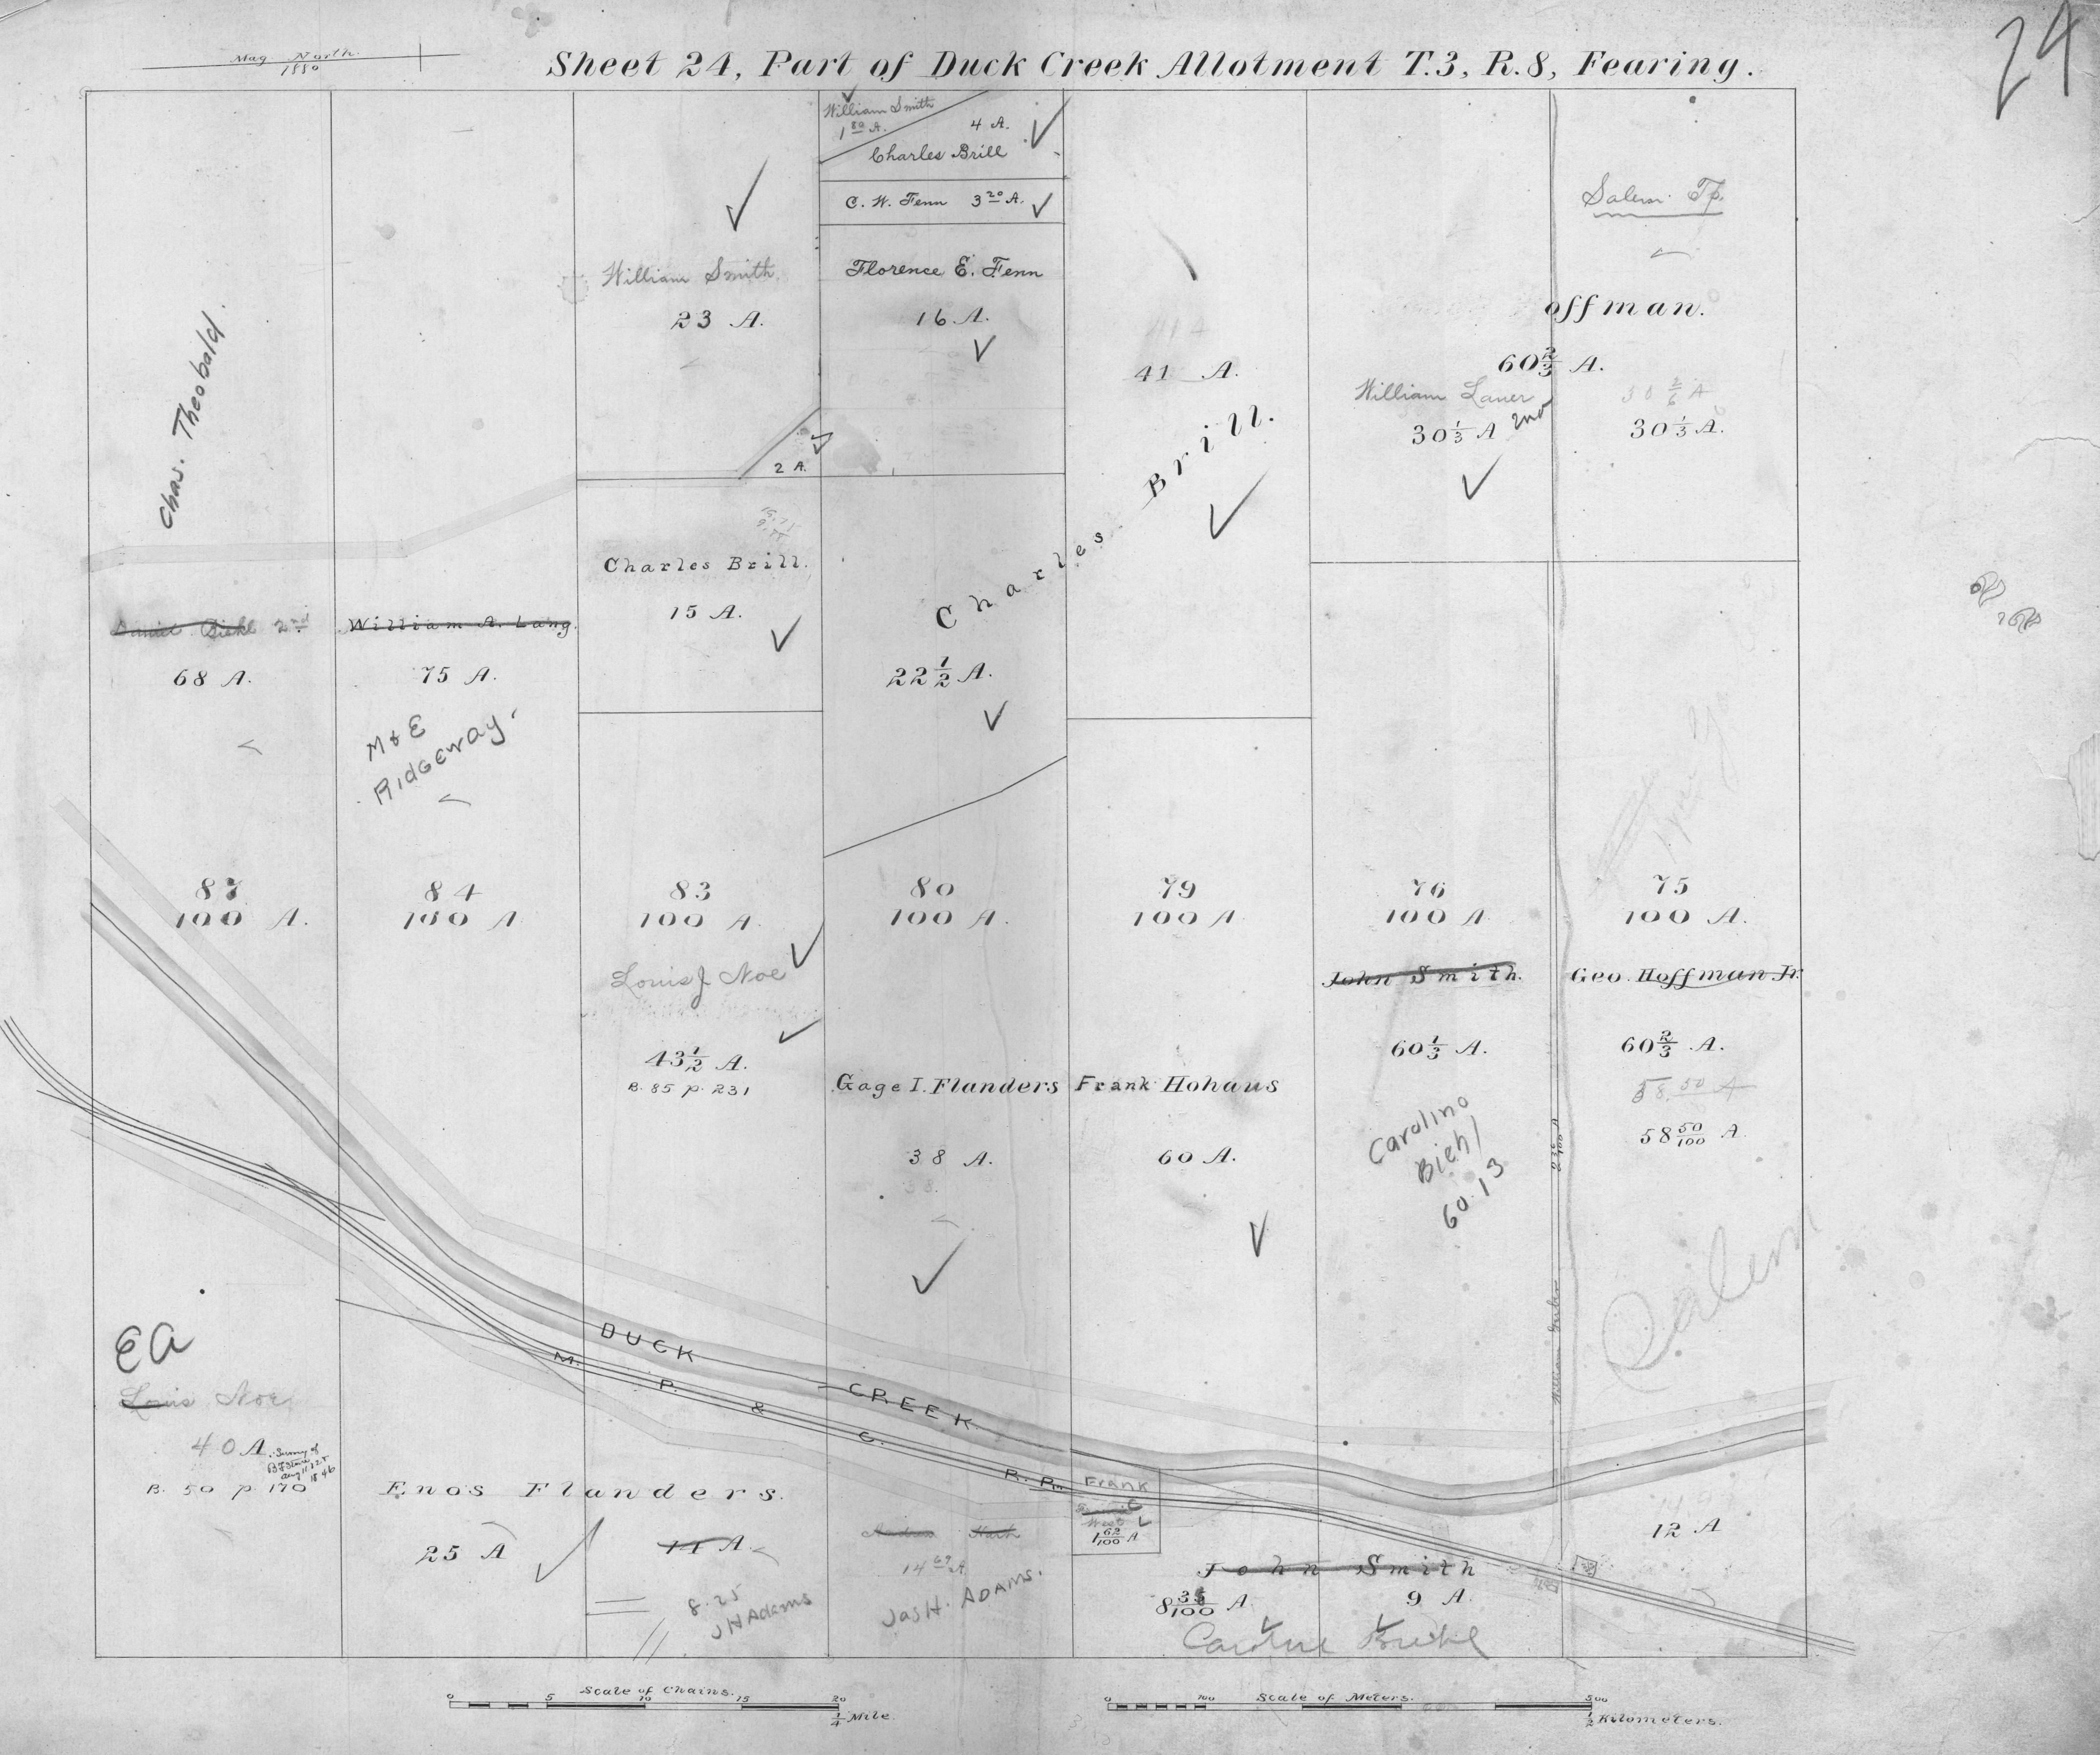 Mag North
1880
Sheet 24, Part of Duck Creek Allotment T.3, R.8, Fearing.
24
William Smith
1 80 A.
4 A.
Charles Brill
C. W. Fenn 3 20 A.
Florence E. Fenn
16 A.
William Smith
23 A.
2 A.
Chas. Theobald.
41 A.
Charles Brill.
Salem Tp.
offman.
60 2/3 A.
William Lauer 2nd
30 1/3 A
30 2/6 A
30 1/3 A.
Daniel Biehl 2nd
68 A.
William A. Lang.
75 A.
M & E
Ridgeway.
Charles Brill.
15 A.
22 1/2 A.
87
100 A.
84
100 A
83
100 A.
80
100 A.
79
100 A
76
100 A
75
100 A.
Louis J Noe
43 1/2 A.
B. 85 p. 231
Gage I. Flanders
38 A.
38.
Frank Hohaus
60 A.
John Smith.
60 1/3 A.
Carolino
Biehl
60.13
Geo. Hoffman Jr.
60 2/3 A.
58.50 A
58 50/100 A
Salem
EA
Louis Noe
40 A.
Survey of
Aug 11 1846
B. 50 p. 170
DUCK CREEK
M. P. & C. R. R.
Enos Flanders.
25 A
11 A.
8.25
J H Adams
14 69 A
Jas H. Adams.
Frank
West
1 62/100 A
John Smith
8 35/100 A
9 A
Caroline Buehl
12 A
Scale of Chains.
0 5 10 15 20
1/4 Mile.
Scale of Meters.
0 100 500
1/2 Kilometers.